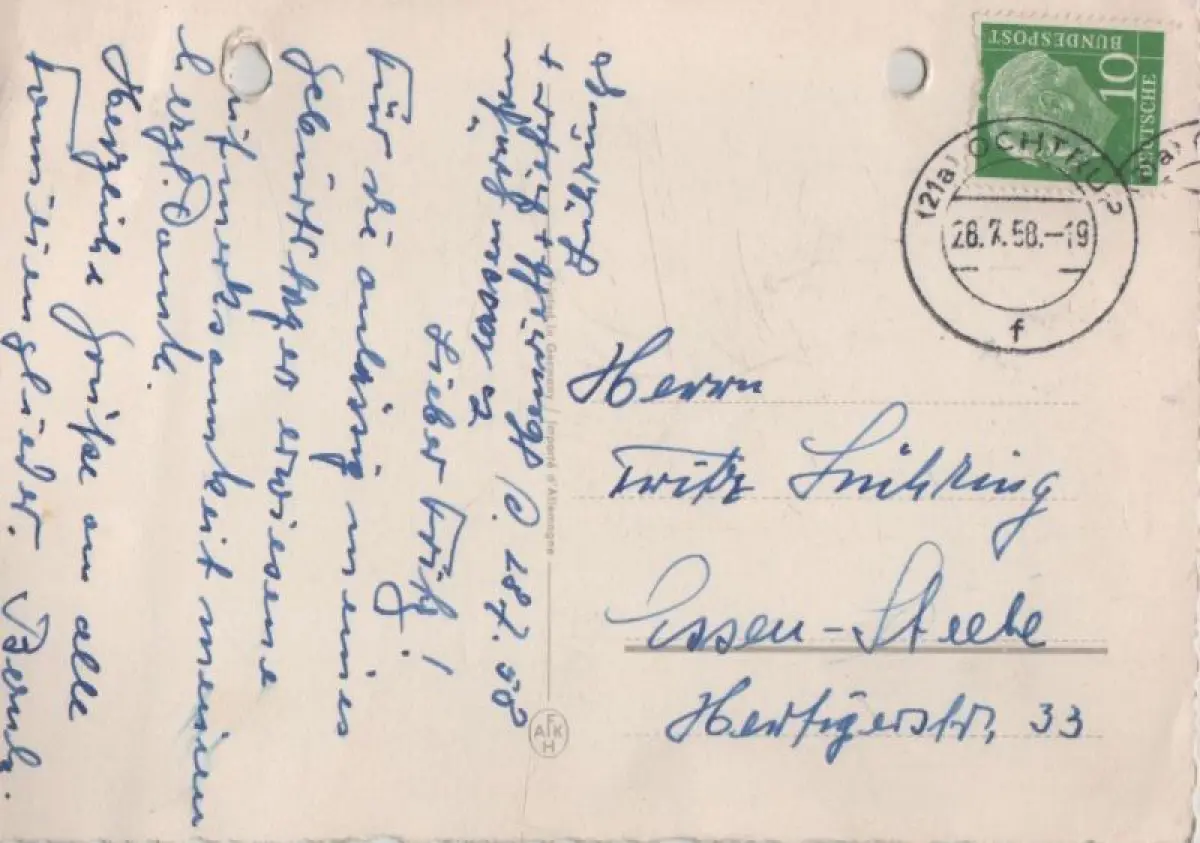 Lühring
D. 28.7.58
Lieber Fritz!
Für die anlässig meines
Geburtstages erwiesene
Aufmerksamkeit meinen
herzl. Dank.
Herzliche Grüße an alle
Familienglieder. Bernh.
in Germany / Importé d'Allemagne
AFKH
DEUTSCHE
BUNDESPOST
10
(21a) OCHTRUP
28.7.58.-19
f
Herrn
Fritz Lühring
Essen-Steele
Hertigerstr. 33